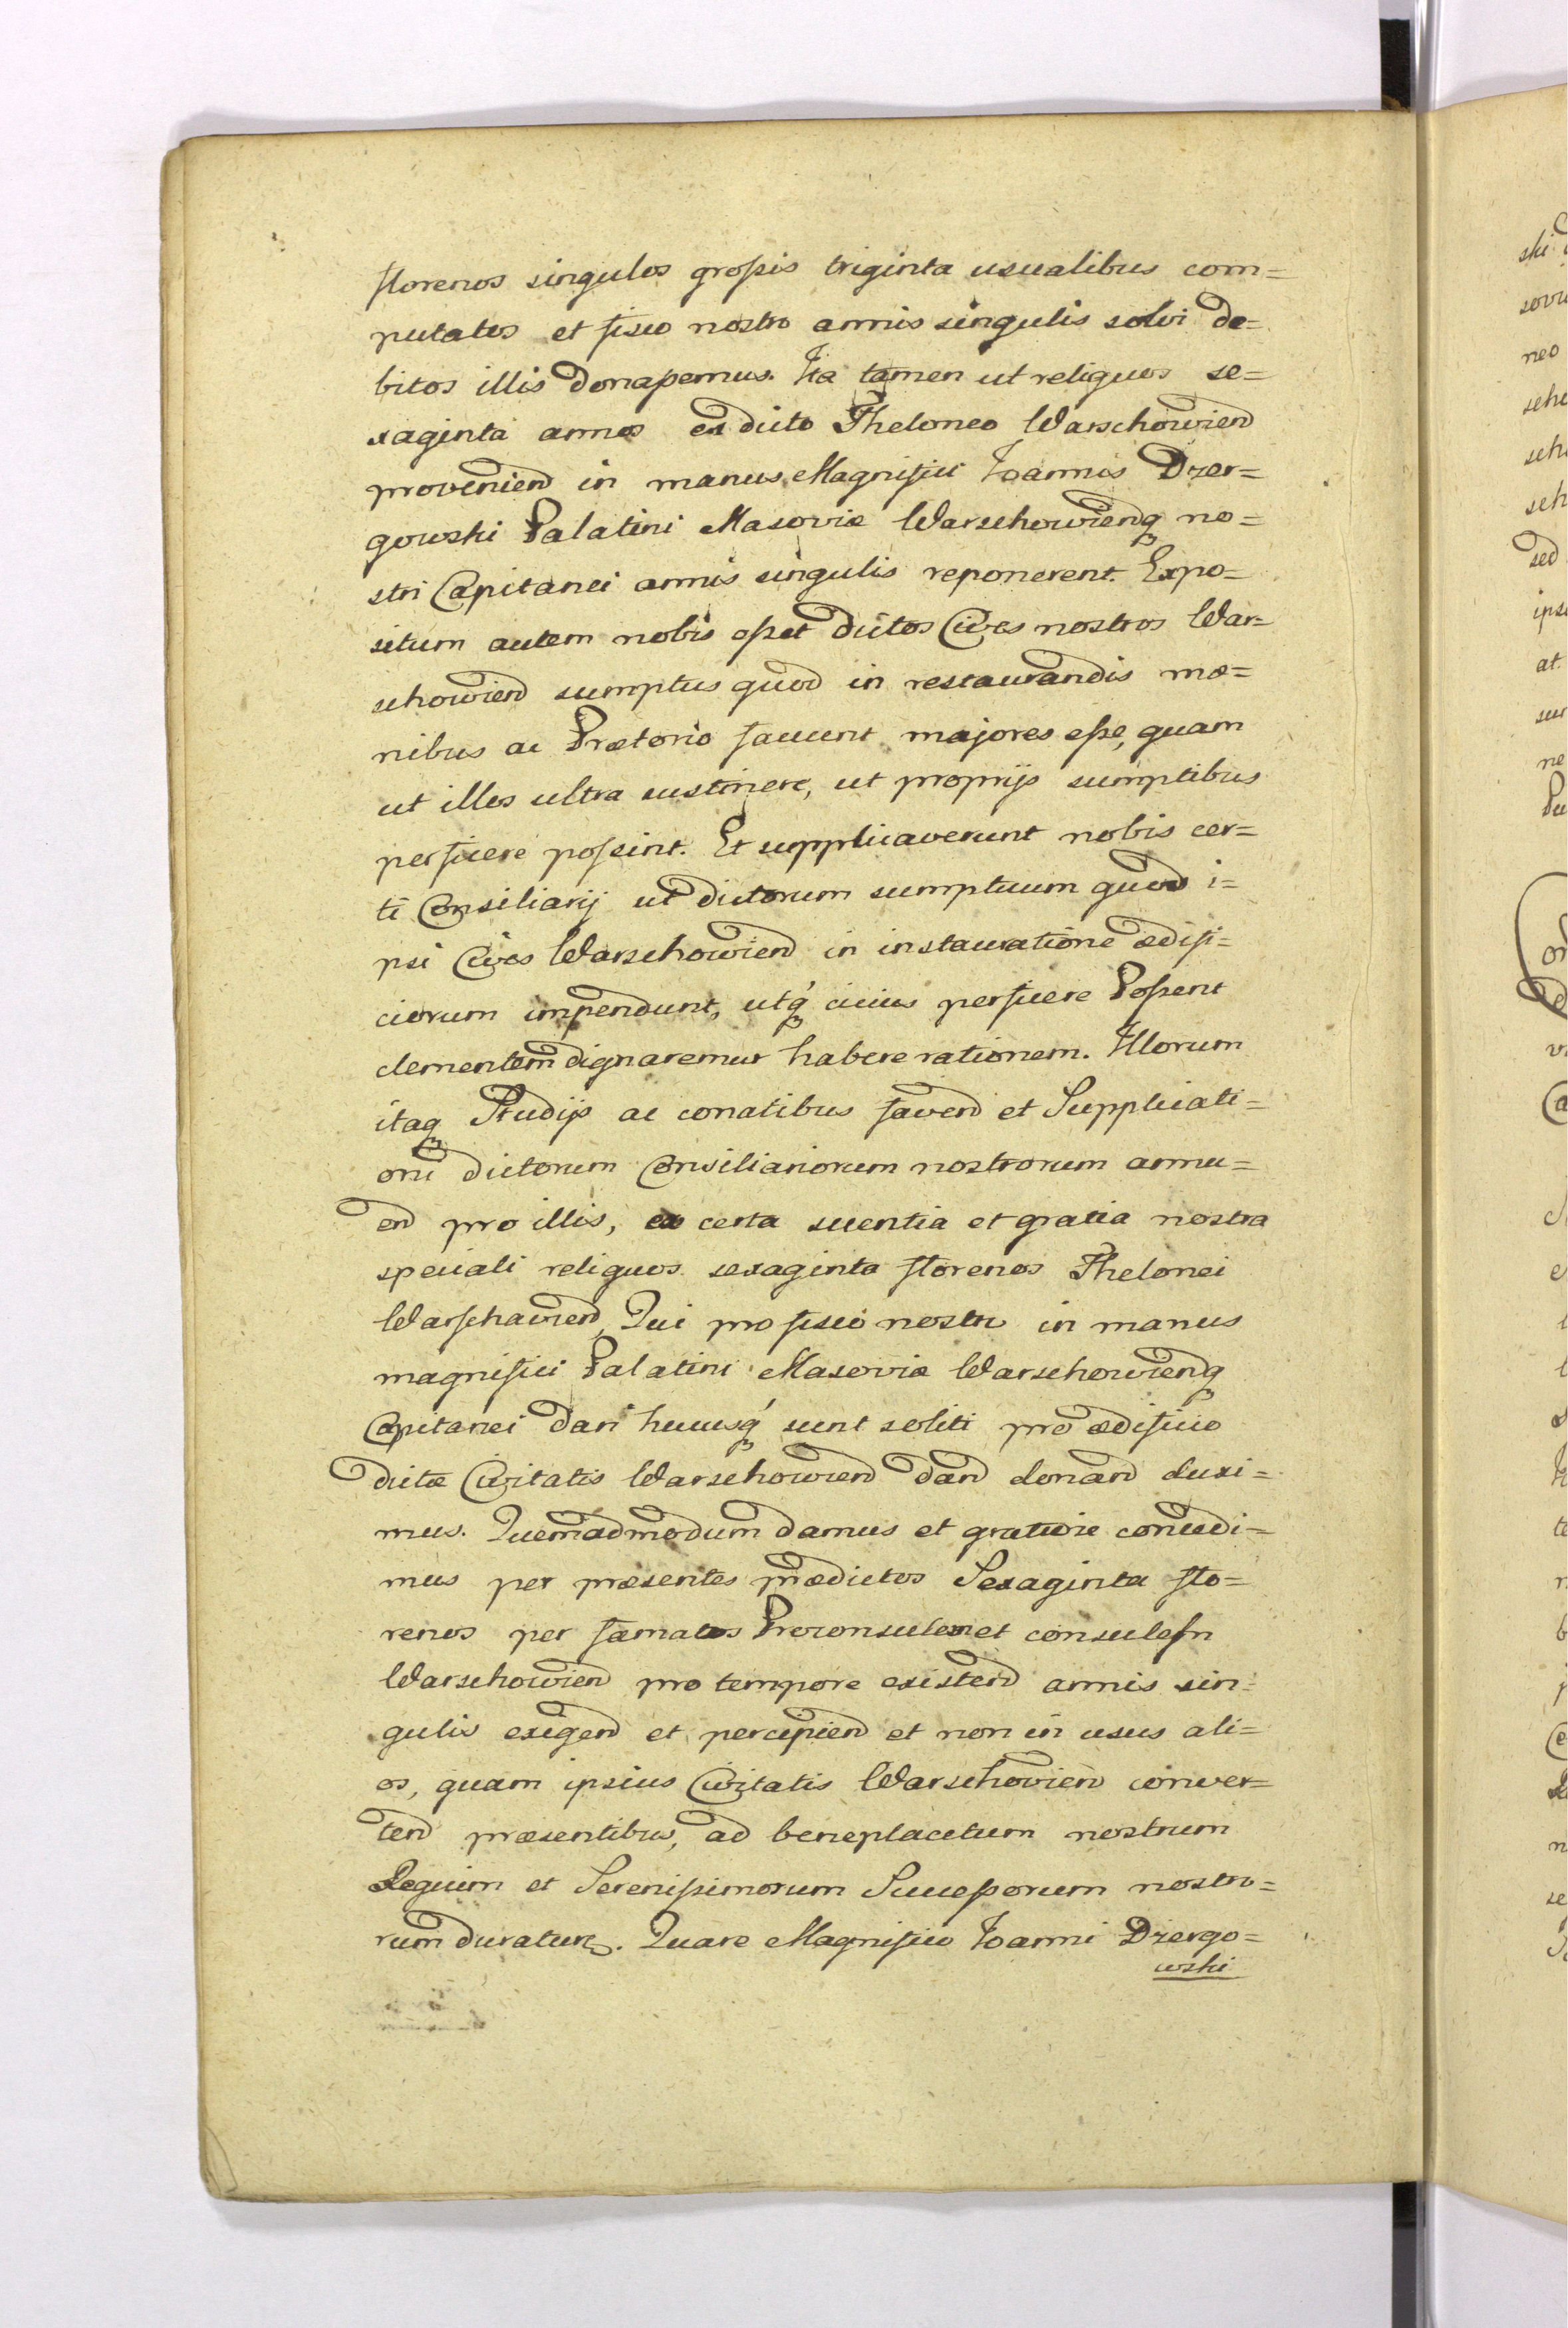 florenos singulos grossis triginta usualibus com=
putatos et fisco nostro annis singulis solvi de=
bitos illis donassemus. Ita tamen ut reliquos se=
xaginta annos ex dicto Theloneo Warschowien̄
provenien̄ in manus Magnifici Joannis Dzer=
gowski Palatini Masoviæ Warschowienq no=
stri Capitanei annis singulis reponerent. Expo=
situm autem nobis esset dictos Cives nostros War=
schowien̄ sumptus quod in restaurandis mœ=
nibus ac Prætorio faciunt majores esse, quam
ut illos ultra sustinere, ut proprijs sumptibus
perficere possint. Et supplicaverunt nobis cer=
ti Consiliarij ut dictorum sumptuum quod i=
psi Cives Warschowien̄ in instauratione ædifi=
ciorum impendunt, utq́ cicius perficere Possent
clementem dignaremur habere rationem. Illorum
itaq Studijs ac conatibus faven̄ et Supplicati=
oni dictorum Consiliariorum nostrorum annu=
en̄ pro illis, ex certa scientia et gratia nostra
speciali reliquos sexaginta florenos Thelonei
Warschavien̄, Qui pro fisco nostro in manus
magnifici Palatini Masoviæ Warschowienq
Capitanei dari hucusq́ sunt soliti pro ædificio
dictæ Civitatis Warschowien̄ dan̄ donan̄ duxi=
mus. Quemadmodum damus et gratiose concedi=
mus per præsentes prædictos Sexaginta flo=
renos per famatos Proconsulem et consulesn
Warschowien̄ pro tempore existen̄ annis sin=
gulis exigen̄ et percipien̄ et non in usus ali=
os, quam ipsius Civitatis Warschovien̄ conver=
ten̄ præsentibus, ad beneplacitum nostrum
Regium et Serenissimorum Successorum nostro=
rum duratur. Quare Magnifico Joanni Dzergo=
wski